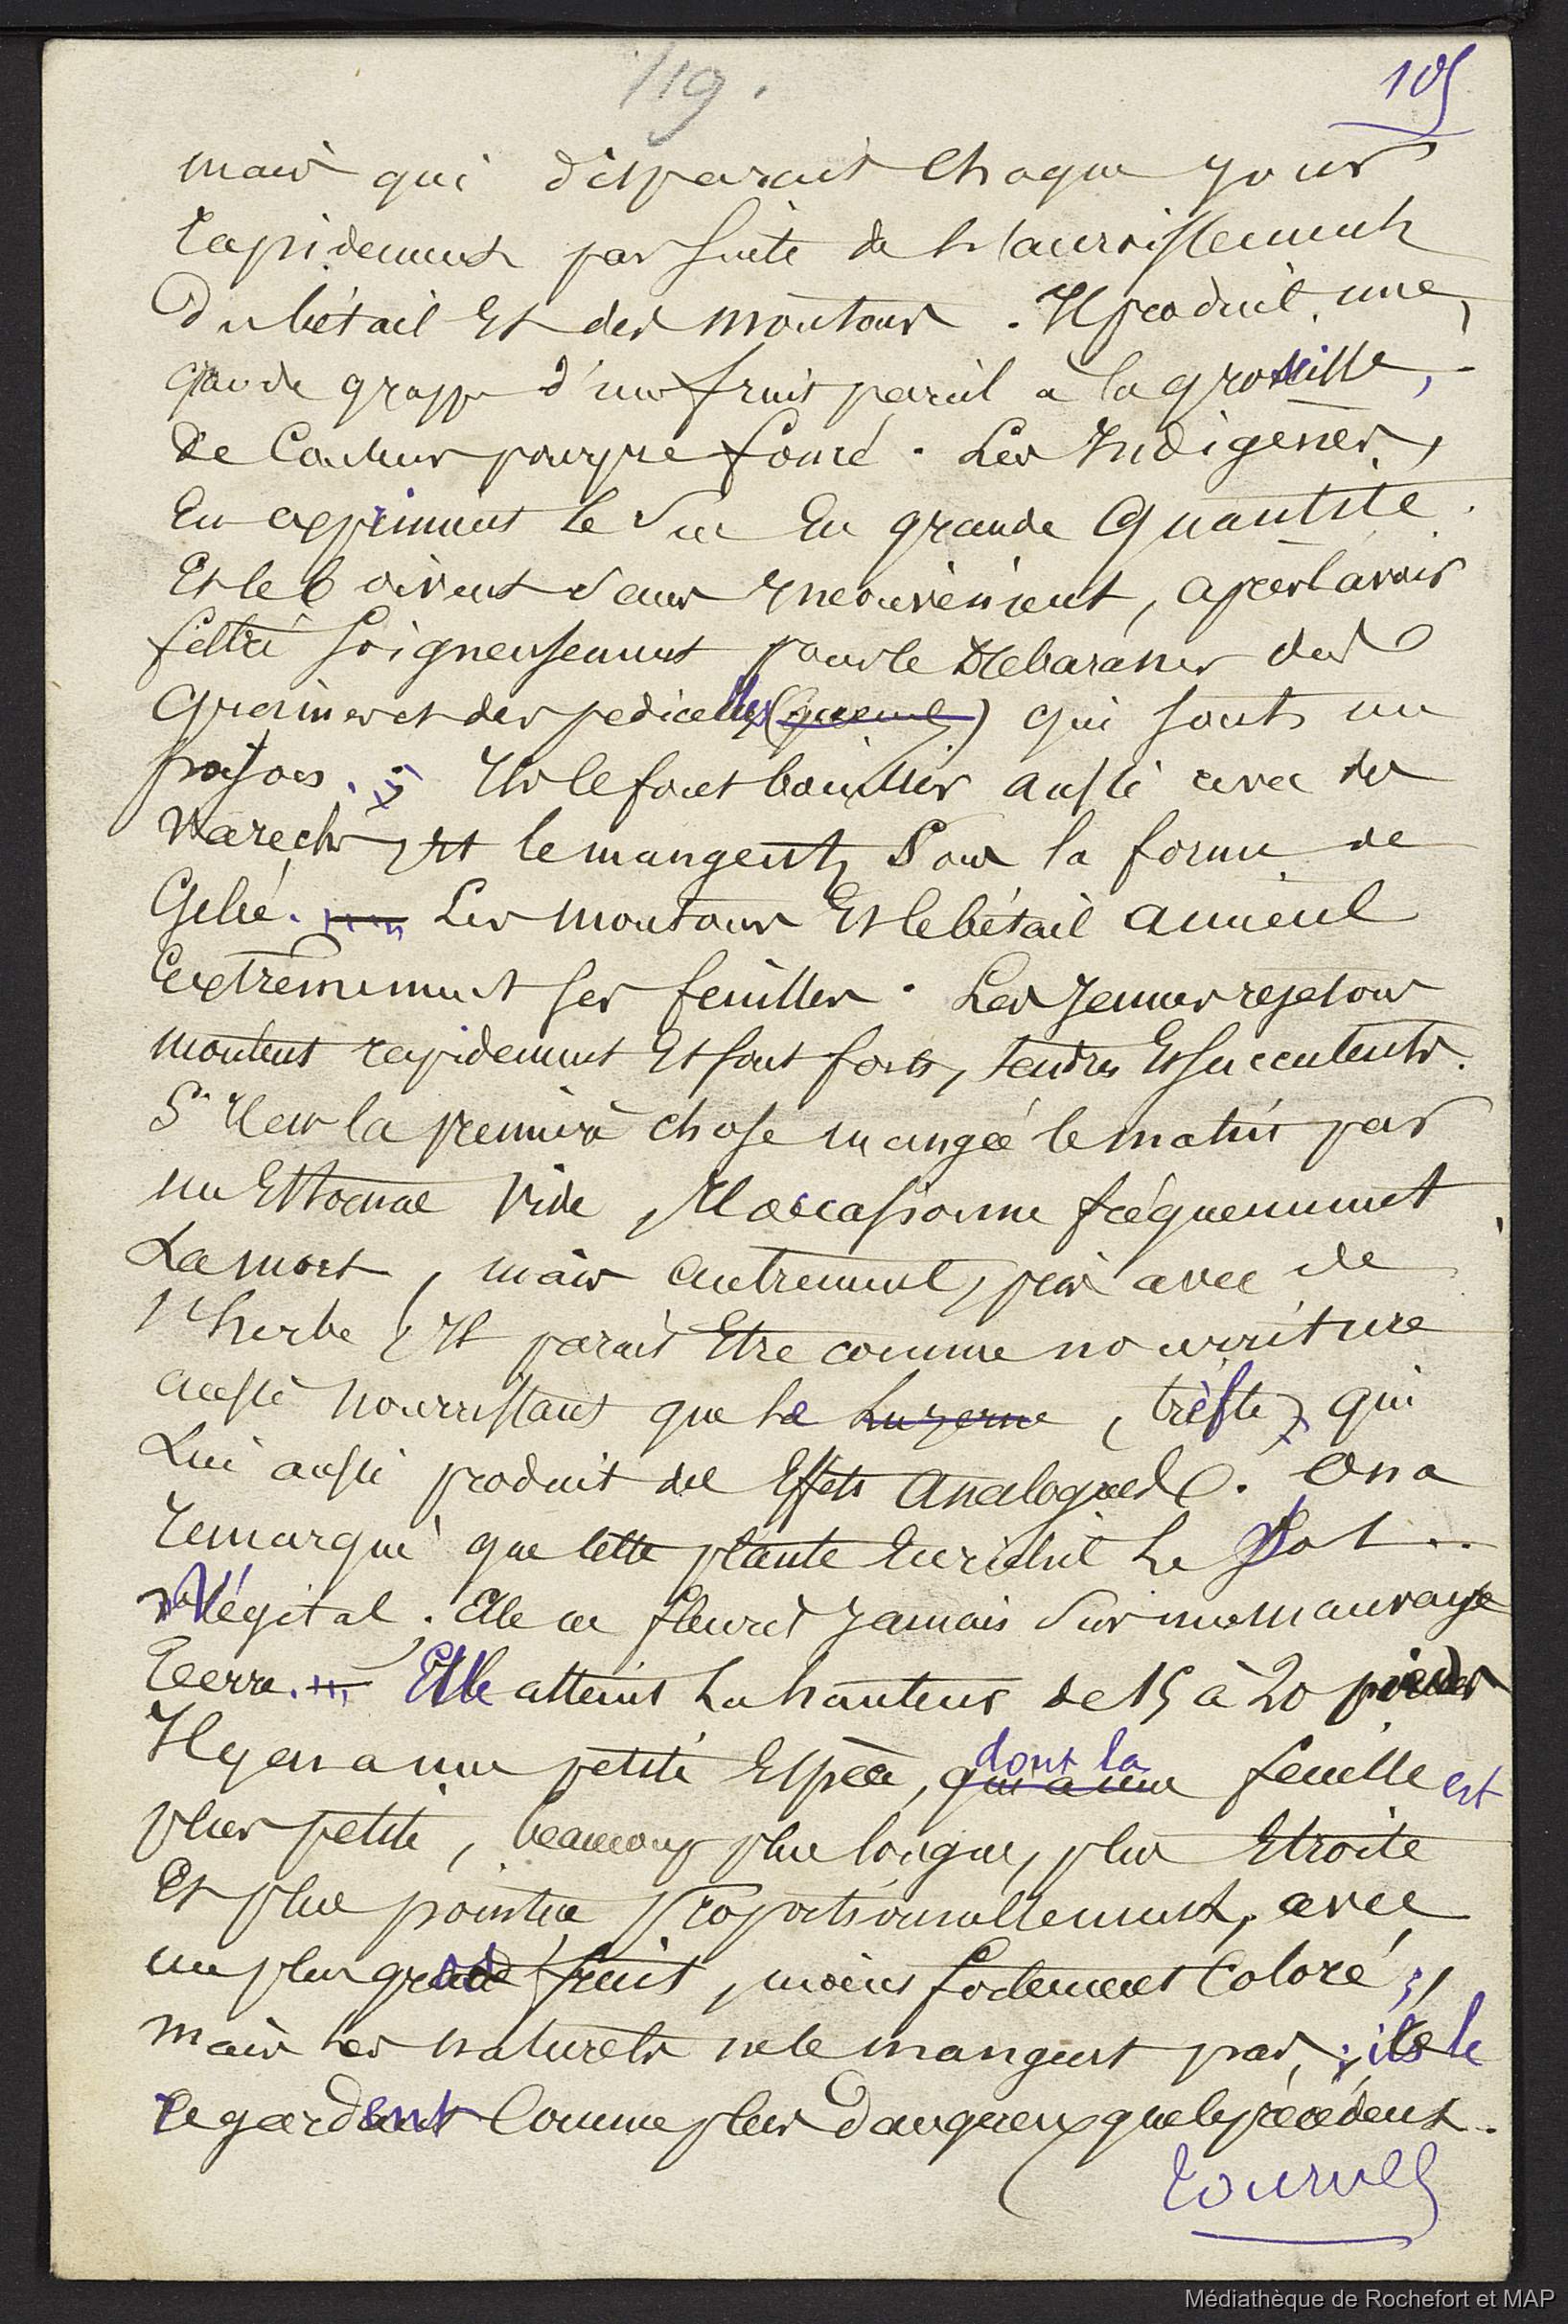 119.
105
mais qui disparait chaque jour
rapidement par suite de l'accroissement
Du bétail Et des moutons. Il produit une,
grande grappe d'un fruit pareil à la groseille,
de Couleur pourpre foncé. Les Indigènes,
En expriment le Suc En grande Quantité
Et le boivent sans Inconvénient, après l'avoir
filtré soigneusement pour le Débarasser des
Graines et des pedicelles qui sont un
poison. Ils le font bouillir aussi avec des
Varechs, Et le mangent, Sous la forme de
Gelée. Les moutons Et le bétail aiment
Extrêmement ses feuilles. Les Jeunes rejetons
montent rapidement Et sont forts, tendres Et succulents.
S'Il est la première chose mangée le matin par
un Estomac Vide, Il occasionne fréquemment
La mort, mais autrement, pris avec de
l'herbe, Il parait Etre comme nourriture
aussi nourrissant que le Luzerne (trèfle) qui
Lui aussi produit des Effets Analogues. On a
remarqué que cette plante Enrichit Le Sol..
Végétal. Elle ne fleurit Jamais Sur une mauvaise
Terre. Elle atteint La hauteur de 15 à 20 pieds
Il y en a une petite Espèce, qui a une dont la feuille est
plus petite, beaucoup plus longue, plus Etroite
Et plus pointue proportionnellement, avec
un plus grand fruit, moins fortement Coloré,
mais les naturels ne le mangent pas; ils le
regardent Comme plus Dangereux que le précédent.
tournez
Médiathèque de Rochefort et MAP